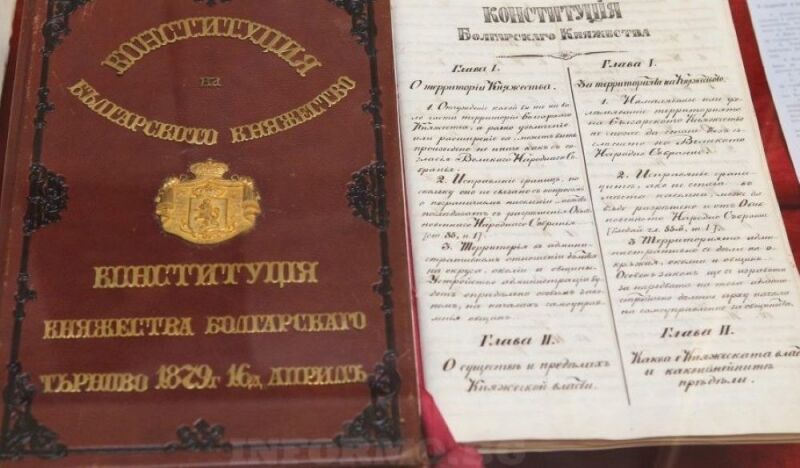 КОНСТИТУЦИЯ
на
БЪЛГАРСКОТО КНЯЖЕСТВО
КОНСТИТУЦІЯ
КНЯЖЕСТВА БОЛГАРСКАГО
ТЪРНОВО 1879г 16й АПРИЛЪ
КОНСТИТУЦІЯ
Болгарскаго Княжества
Глава I.
О территоріи Княжества.
1. какой бы то ни бы
ло части территоріи Болгарскаго
Княжества, а равно увеличеніе
или расширеніе можетъ быть
произведено не иначе какъ съ со
гласія Великаго Народнаго Со
бранья.
2. Исправленіе границъ, по
скольку оно не связано съ вопросомъ
о
съ разрѣшенія Обык
новеннаго Народнаго Собранія
[ст. 85, п. 1]
3. Территорія въ админи
стративномъ отношеніи
на округа, околіи и общины.
Устройство администраціи бу
детъ опредѣлено особымъ зако
номъ, на началахъ самоуправ
ленія общинъ.
Глава II.
О существѣ и предѣлахъ
Княжеской власти.
Глава I.
За территорията на Княжеството
1. или уго
лѣмяванье территорията
на Българското Княжество
не може да стане безъ съ
гласието на Великото
Народно Събрание.
2. Исправянье грани
цитѣ, ако не става во
мѣста населени, може да
бѫде разрѣшено и отъ Обик
новенното Народно Събрание
3 Территорията адми
нистративно се дѣли на о
крѫжия, околии и общини.
Особенъ законъ ще се изработи
за нарѣдбата на това админи
стративно дѣление врѣхъ начала
на самоуправление за общинитѣ.
Глава II.
Каква е Княжеската власт
и какви сѫ нейнитѣ
прѣдѣли.
INFORMO.BG